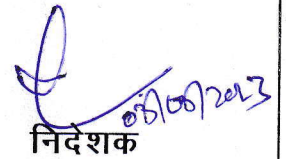 08/08/2023
निदेशक